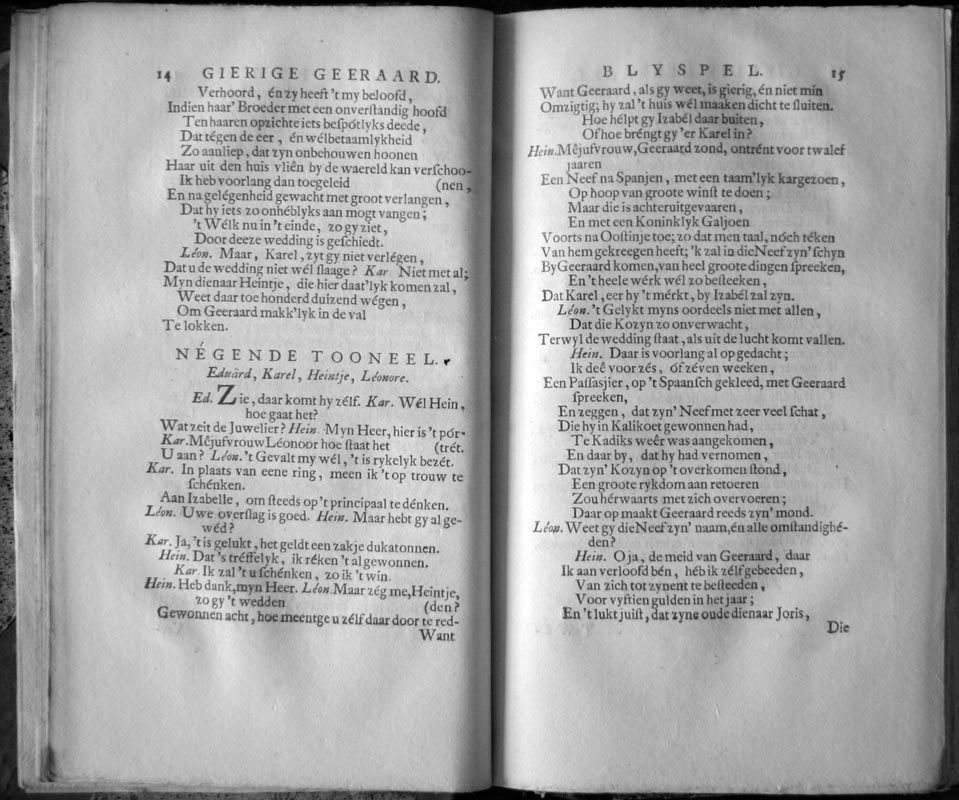 14 GIERIGE GEERAARD.
Verhoord, én zy heeft 't my beloofd,
Indien haar' Broeder met een onverſtandig hoofd
Ten haaren opzichte iets beſpótlyks deede,
Dat tégen de eer, én wélbetaamlykheid
Zo aanliep, dat zyn onbehouwen hoonen
Haar uit den huis vliên by de waereld kan verſchoo-
Ik heb voorlang dan toegeleid (nen,
En na gelégenheid gewacht met groot verlangen,
Dat hy iets zo onhéblyks aan mogt vangen;
't Wélk nu in 't einde, zo gy ziet,
Door deeze wedding is geſchiedt.
Léon. Maar, Karel, zyt gy niet verlégen,
Dat u de wedding niet wél ſlaage? Kar. Niet met al;
Myn dienaar Heintje, die hier daat'lyk komen zal,
Weet daar toe honderd duizend wégen,
Om Geeraard makk'lyk in de val
Te lokken.
NÉGENDE TOONEEL.
Eduärd, Karel, Heintje, Léonore.
Ed. Zie, daar komt hy zélf. Kar. Wél Hein,
hoe gaat het?
Wat zeit de Juwelier? Hein. Myn Heer, hier is 't pór-
Kar. Mêjufvrouw Léonoor hoe ſtaat het (trét.
U aan? Léon. 't Gevalt my wél, 't is rykelyk bezét.
Kar. In plaats van eene ring, meen ik 't op trouw te
ſchénken.
Aan Izabelle, om ſteeds op 't principaal te dénken.
Léon. Uwe overſlag is goed. Hein. Maar hebt gy al ge-
wéd?
Kar. Ja, 't is gelukt, het geldt een zakje dukatonnen.
Hein. Dat's tréffelyk, ik réken 't al gewonnen.
Kar. Ik zal 't u ſchénken, zo ik 't win.
Hein. Heb dank, myn Heer. Léon. Maar zég me, Heintje,
zo gy 't wedden (den?
Gewonnen acht, hoe meentge u zélf daar door te red-
Want
BLYSPEL. 15
Want Geeraard, als gy weet, is gierig, én niet min
Omzigtig; hy zal 't huis wél maaken dicht te ſluiten.
Hoe hélpt gy Izabél daar buiten,
Of hoe bréngt gy 'er Karel in?
Hein. Mêjufvrouw, Geeraard zond, ontrént voor twalef
jaaren
Een Neef na Spanjen, met een taam'lyk kargezoen,
Op hoop van groote winſt te doen;
Maar die is achteruitgevaaren,
En met een Koninklyk Galjoen
Voorts na Ooſtinje toe; zo dat men taal, nóch téken
Van hem gekreegen heeft; 'k zal in die Neef zyn' ſchyn
By Geeraard komen, van heel groote dingen ſpreeken,
En 't heele wérk wél zo beſteeken,
Dat Karel, eer hy 't mérkt, by Izabél zal zyn.
Léon. 't Gelykt myns oordeels niet met allen,
Dat die Kozyn zo onverwacht,
Terwyl de wedding ſtaat, als uit de lucht komt vallen.
Hein. Daar is voorlang al op gedacht;
Ik deê voor zés, óf zéven weeken,
Een Paſſasjier, op 't Spaanſch gekleed, met Geeraard
ſpreeken,
En zeggen, dat zyn' Neef met zeer veel ſchat,
Die hy in Kalikoet gewonnen had,
Te Kadiks weêr was aangekomen,
En daar by, dat hy had vernomen,
Dat zyn' Kozyn op 't overkomen ſtond,
Een groote rykdom aan retoeren
Zou hérwaarts met zich overvoeren;
Daar op maakt Geeraard reeds zyn' mond.
Léon. Weet gy die Neef zyn' naam, én alle omſtandighé-
den?
Hein. O ja, de meid van Geeraard, daar
Ik aan verloofd bén, héb ik zélf gebeeden,
Van zich tot zynent te beſteeden,
Voor vyftien gulden in het jaar;
En 't lukt juiſt, dat zyne oude dienaar Joris,
Die